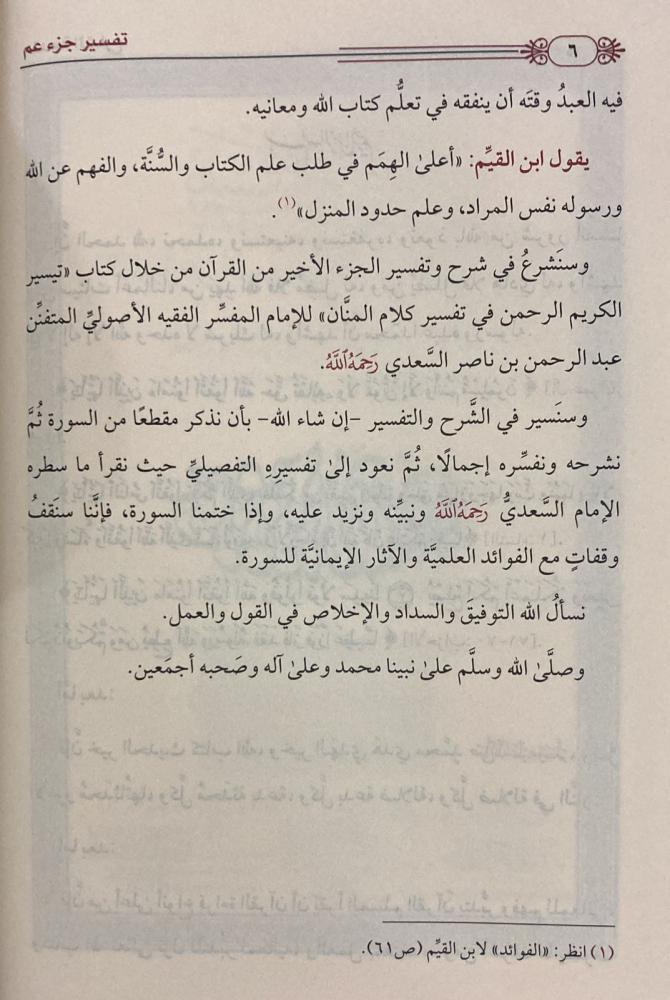 ٦
تفسير جزء عم
فيه العبدُ وقتَه أن ينفقه في تعلُّم كتاب الله ومعانيه.
يقول ابن القيِّم: «أعلىٰ الهِمَم في طلب علم الكتاب والسُّنَّة، والفهم عن الله
ورسوله نفس المراد، وعلم حدود المنزل»(١).
وسنَشرعُ في شرح وتفسير الجزء الأخير من القرآن من خلال كتاب «تيسير
الكريم الرحمن في تفسير كلام المنَّان» للإمام المفسِّر الفقيه الأصوليِّ المتفنِّن
عبد الرحمن بن ناصر السَّعدي رَحِمَهُ ٱللَّهُ.
وسنَسير في الشَّرح والتفسير -إن شاء الله- بأن نذكر مقطعًا من السورة ثُمَّ
نشرحه ونفسِّره إجمالًا، ثُمَّ نعود إلىٰ تفسيرِهِ التفصيليِّ حيث نقرأ ما سطره
الإمام السَّعديُّ رَحِمَهُ ٱللَّهُ ونبيِّنه ونزيد عليه، وإذا ختمنا السورة، فإنَّنا سنَقفُ
وقفاتٍ مع الفوائد العلميَّة والآثار الإيمانيَّة للسورة.
نسألُ الله التوفيقَ والسداد والإخلاص في القول والعمل.
وصلَّىٰ الله وسلَّم علىٰ نبينا محمد وعلىٰ آله وصَحبه أجمَعين.
(١) انظر: «الفوائد» لابن القيِّم (ص٦١).